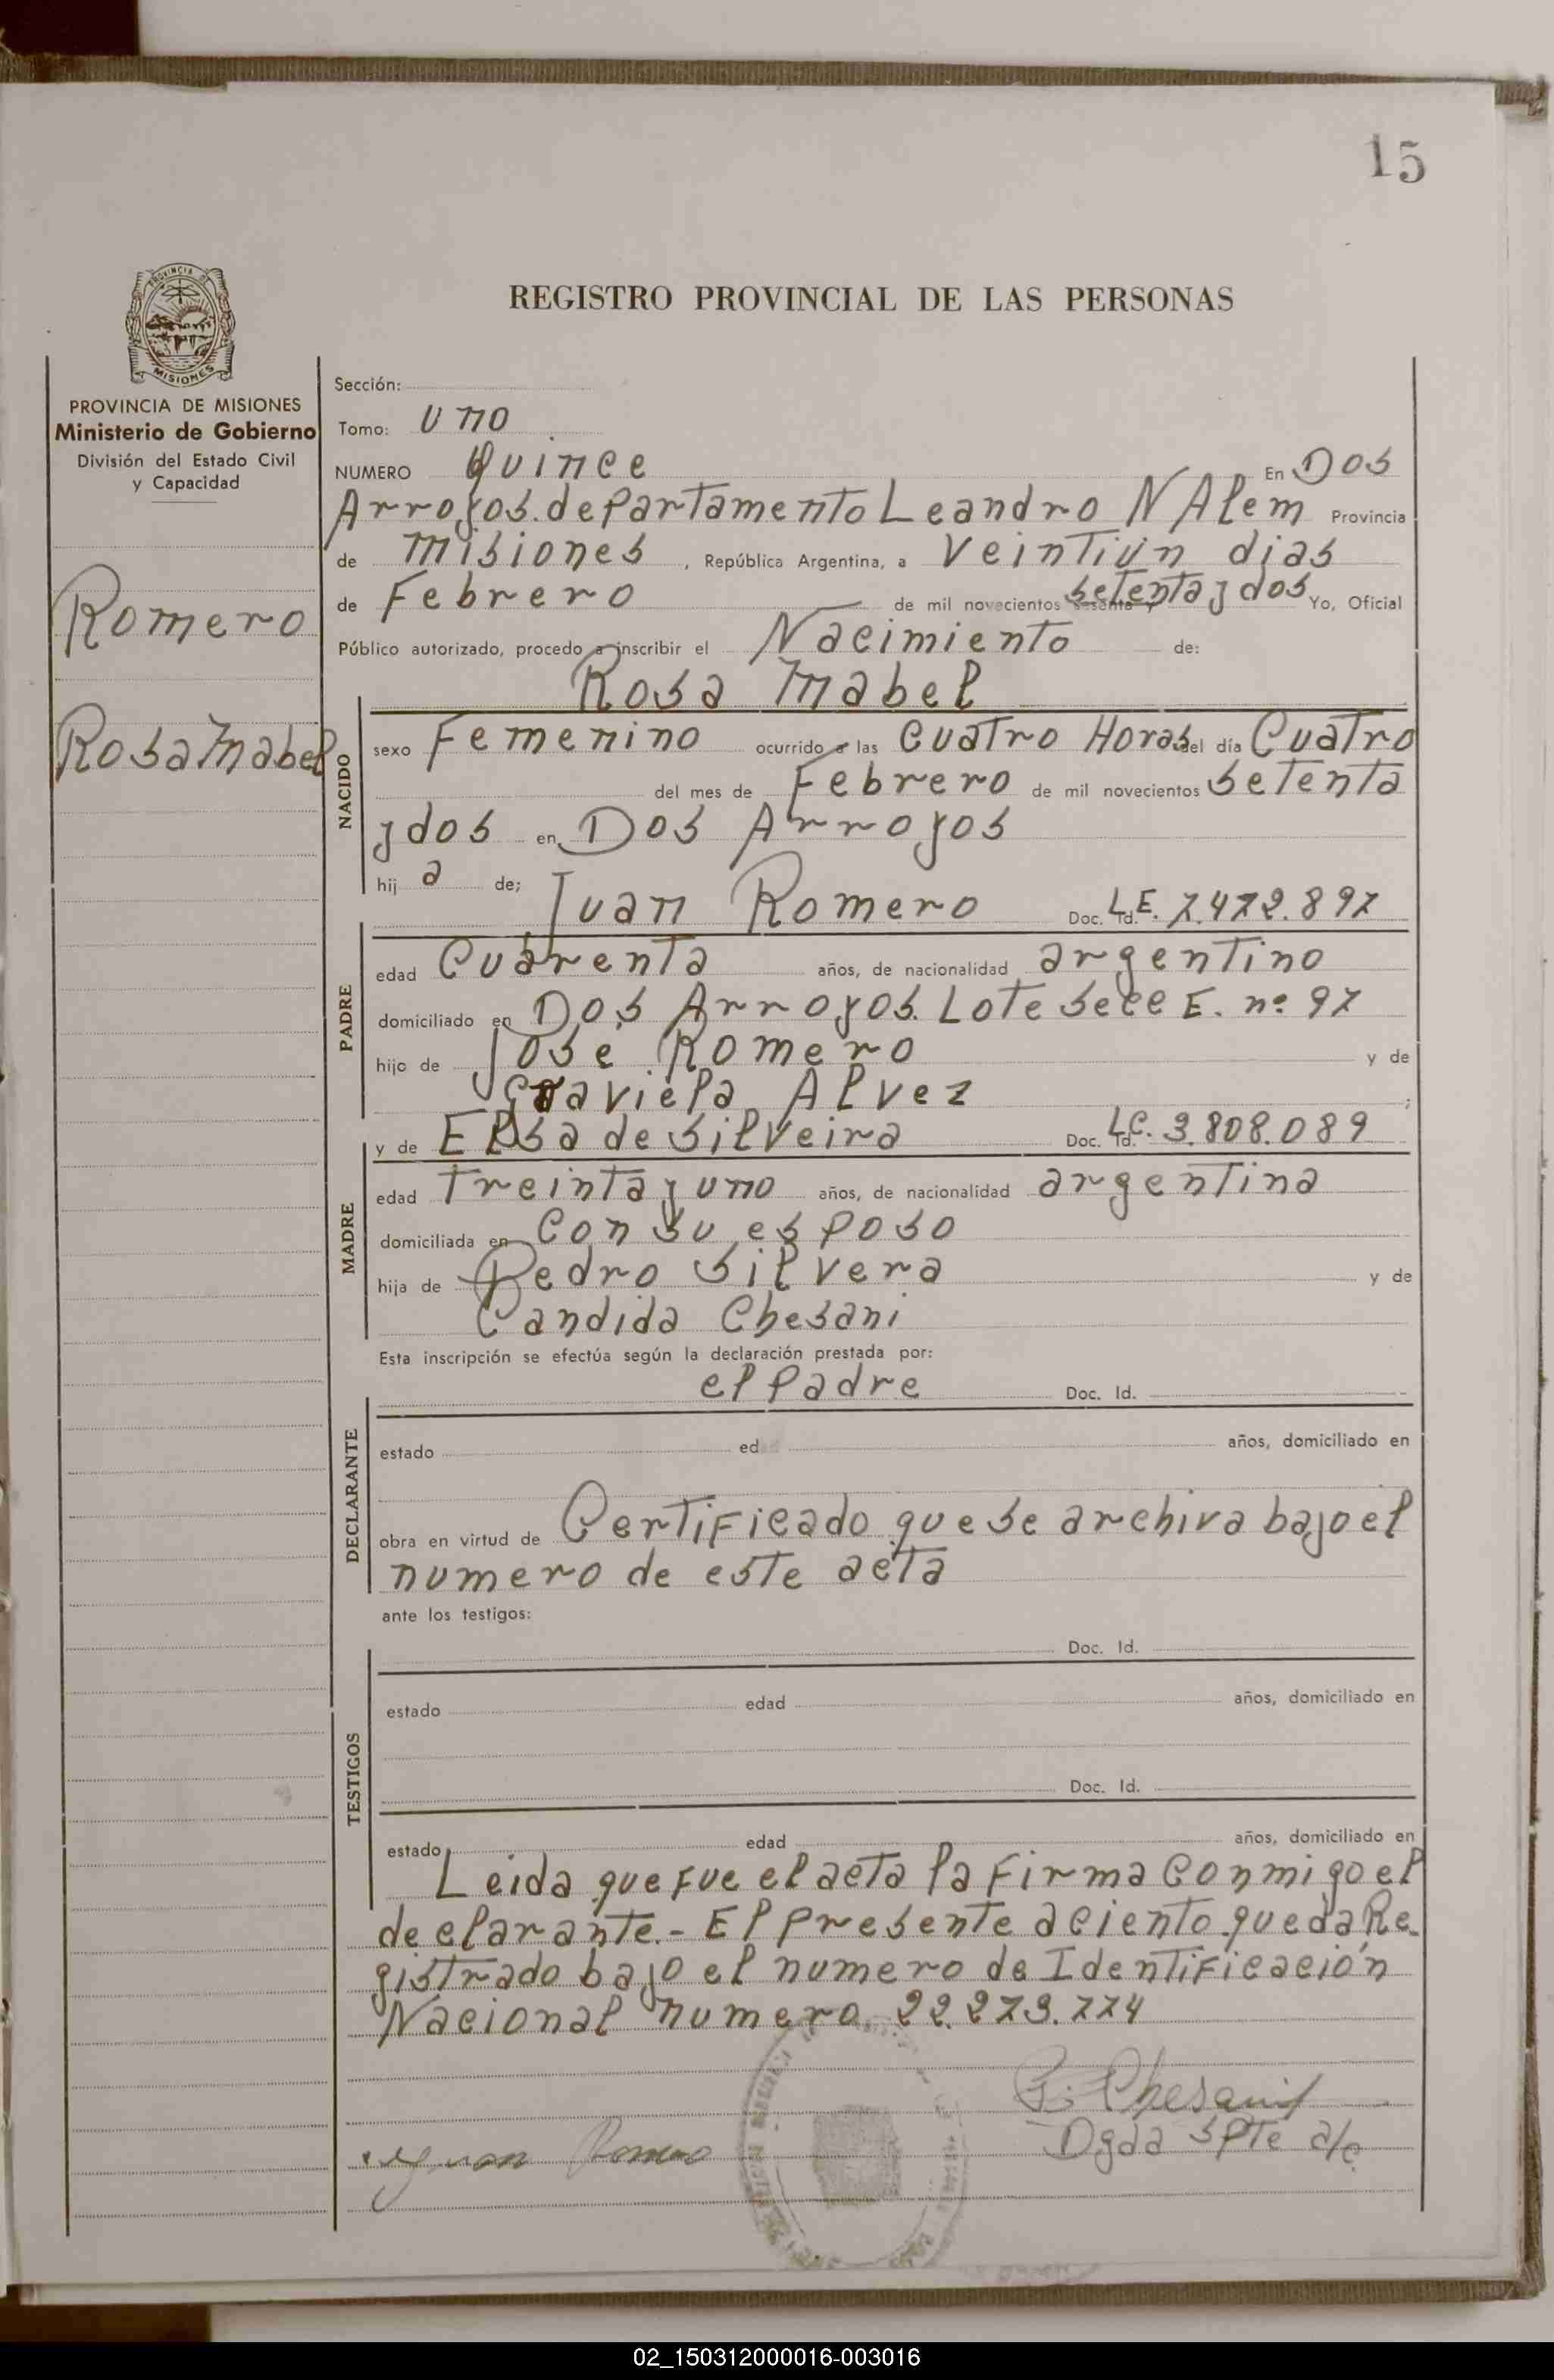 15
PROVINCIA DE
MISIONES
REGISTRO PROVINCIAL DE LAS PERSONAS
PROVINCIA DE MISIONES
Ministerio de Gobierno
División del Estado Civil
y Capacidad
Romero
Rosa Mabel
Sección:
Tomo: uno
NUMERO Quince En Dos
Arroyos. departamento Leandro N Alem Provincia
de misiones, República Argentina, a Veintiún dias
de Febrero de mil novecientos sesenta y setenta y dos Yo, Oficial
Público autorizado, procedo a inscribir el Nacimiento de:
Rosa Mabel
NACIDO
sexo Femenino ocurrido a las Cuatro Horas del día Cuatro
del mes de Febrero de mil novecientos setenta
y dos en Dos Arroyos
hij a de;
Juan Romero Doc. Id. L.E. 7.472.897
PADRE
edad Cuarenta años, de nacionalidad argentino
domiciliado en Dos Arroyos. Lote Secc E. nº 97
hijo de José Romero y de
Graviela Alvez;
y de Elsa de Silveira Doc. Id. L.C. 3.808.089
MADRE
edad Treinta y uno años, de nacionalidad argentina
domiciliada en Con su esposo
hija de Pedro Silvera y de
Candida Chesani
Esta inscripción se efectúa según la declaración prestada por:
el Padre Doc. Id.
DECLARANTE
estado edad años, domiciliado en
obra en virtud de Certificado que se archiva bajo el
numero de este acta
ante los testigos:
Doc. Id.
TESTIGOS
estado edad años, domiciliado en
Doc. Id.
estado edad años, domiciliado en
Leida que fue el acta la firma Conmigo el
declarante.- El presente aciento queda Re
gistrado bajo el numero de Identificación
Nacional numero. 22.273.774
Juan Romero
Chesani
Dgda Spte a/c.
02_150312000016-003016